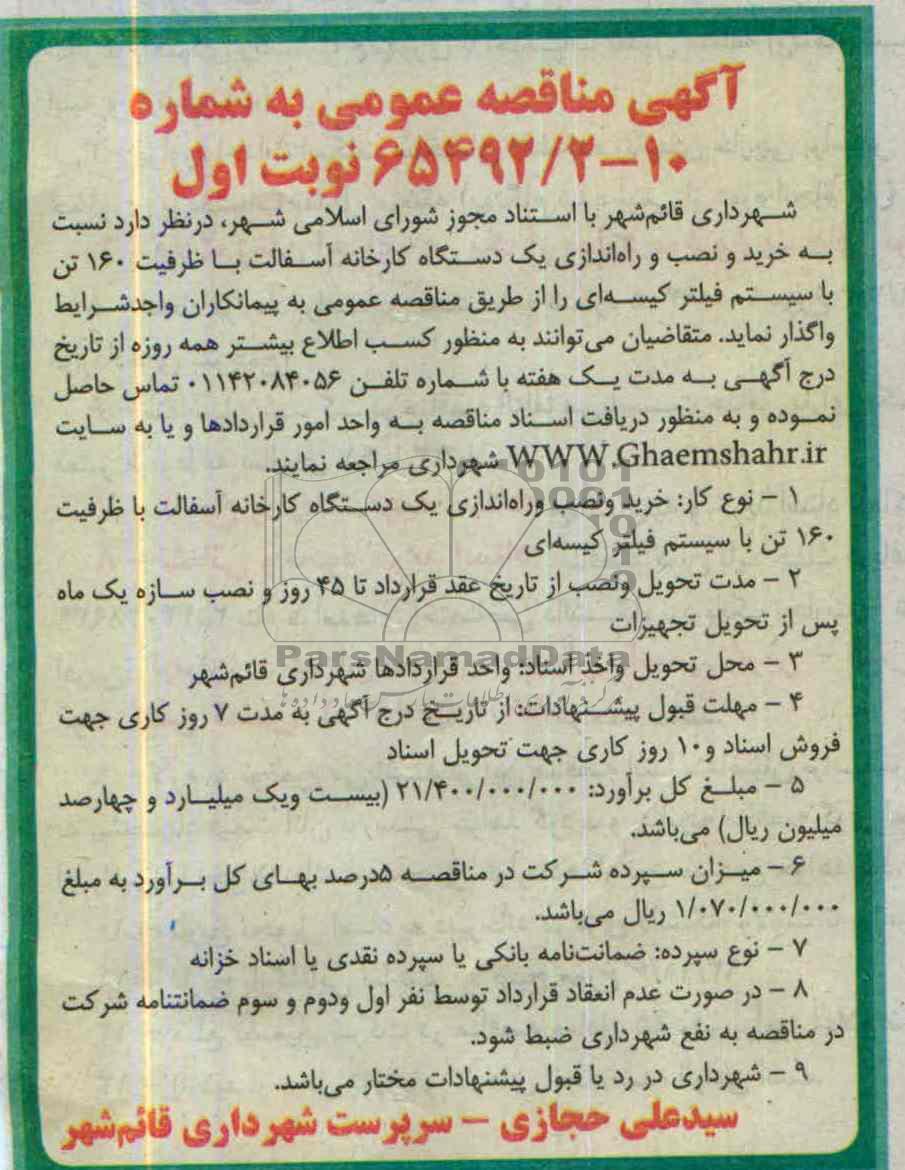 آگهی مناقصه عمومی به شماره
۶۵۴۹۲/۲-۱۰ نوبت اول
شهرداری قائم‌شهر با استناد مجوز شورای اسلامی شهر، درنظر دارد نسبت
به خرید و نصب و راه‌اندازی یک دستگاه کارخانه آسفالت با ظرفیت ۱۶۰ تن
با سیستم فیلتر کیسه‌ای را از طریق مناقصه عمومی به پیمانکاران واجدشرایط
واگذار نماید. متقاضیان می‌توانند به منظور کسب اطلاع بیشتر همه روزه از تاریخ
درج آگهی به مدت یک هفته با شماره تلفن ۰۱۱۴۲۰۸۴۰۵۶ تماس حاصل
نموده و به منظور دریافت اسناد مناقصه به واحد امور قراردادها و یا به سایت
WWW.Ghaemshahr.ir شهرداری مراجعه نمایند.
۱ - نوع کار: خرید ونصب وراه‌اندازی یک دستگاه کارخانه آسفالت با ظرفیت
۱۶۰ تن با سیستم فیلتر کیسه‌ای
۲ - مدت تحویل ونصب از تاریخ عقد قرارداد تا ۴۵ روز و نصب سازه یک ماه
پس از تحویل تجهیزات
ParsNamadData
۳ - محل تحویل واخذ اسناد: واحد قراردادها شهرداری قائم‌شهر
۴ - مهلت قبول پیشنهادات: از تاریخ درج آگهی به مدت ۷ روز کاری جهت
فروش اسناد و۱۰ روز کاری جهت تحویل اسناد
۵ - مبلغ کل برآورد: ۲۱/۴۰۰/۰۰۰/۰۰۰ (بیست ویک میلیارد و چهارصد
میلیون ریال) می‌باشد.
۶ - میزان سپرده شرکت در مناقصه ۵درصد بهای کل برآورد به مبلغ
۱/۰۷۰/۰۰۰/۰۰۰ ریال می‌باشد.
۷ - نوع سپرده: ضمانت‌نامه بانکی یا سپرده نقدی یا اسناد خزانه
۸ - در صورت عدم انعقاد قرارداد توسط نفر اول ودوم و سوم ضمانتنامه شرکت
در مناقصه به نفع شهرداری ضبط شود.
۹ - شهرداری در رد یا قبول پیشنهادات مختار می‌باشد.
سیدعلی حجازی - سرپرست شهرداری قائم‌شهر